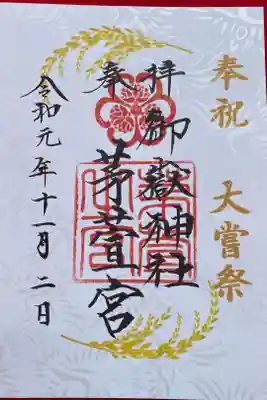 奉祝 大嘗祭
奉拝
御嶽神社
茅萱宮
令和元年十一月二日